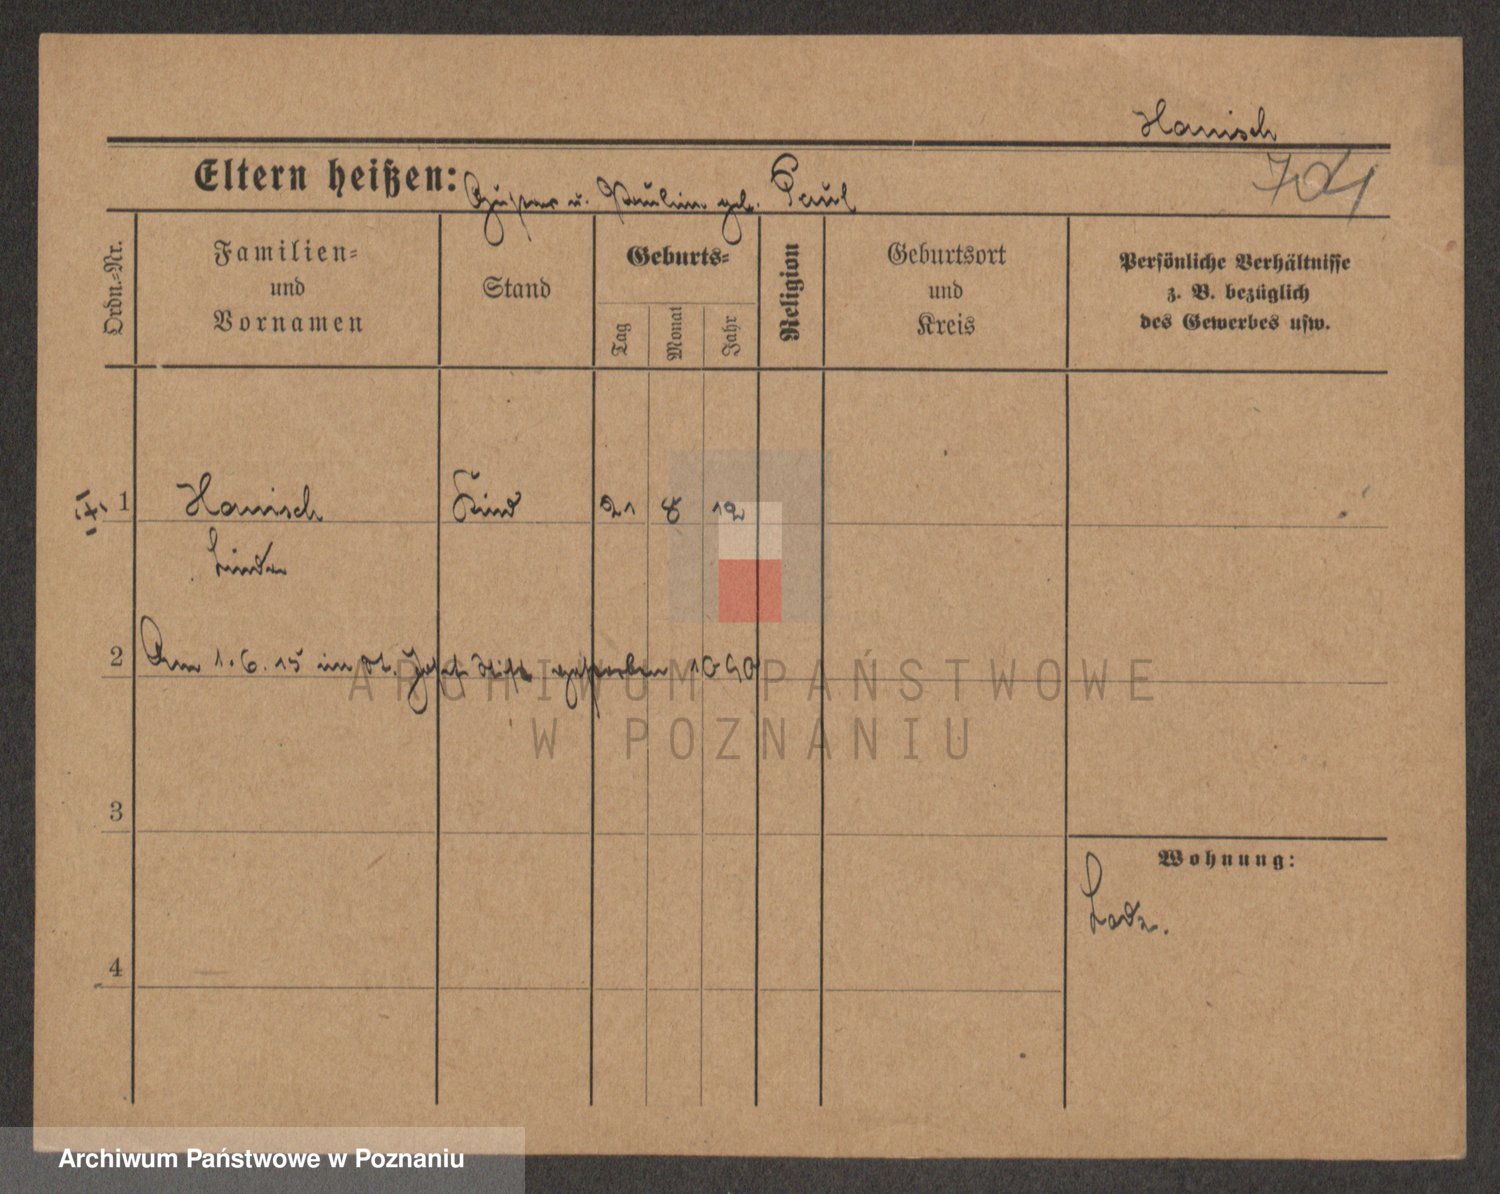 Hanisch
Eltern heißen: Gustav u. Paulina geb. Paul
Ordn.=Nr.
Familien=
und
Vornamen
Stand
Geburts=
Tag
Monat
Jahr
Religion
Geburtsort
und
Kreis
Persönliche Verhältnisse
z. B. bezüglich
des Gewerbes usw.
1 Hanisch Kind 21 8 12
Linda
2 Am 1.6.15 im St. Josef Stift gestorben
3
Wohnung:
Lodz.
4
ARCHIWUM PAŃSTWOWE
W POZNANIU
Archiwum Państwowe w Poznaniu